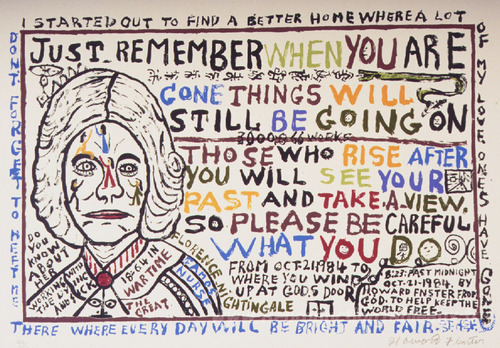 I STARTED OUT TO FIND A BETTER HOME WHERE A LOT
OF MY LOVE ONES HAVE GONE
DONT FORGET TO MEET ME
THERE WHERE EVERY DAY WILL BE BRIGHT AND FAIR.
JUST REMEMBER WHEN YOU ARE
GONE THINGS WILL
STILL BE GOING ON
WORKS
THOSE WHO RISE AFTER
YOU WILL SEE YOUR
PAST AND TAKE A VIEW.
SO PLEASE BE CAREFUL
WHAT YOU DO
FROM OCT.21.1984 TO
WHERE YOU WIND
UP AT GOD,S DOOR
8:23: PAST MIDNIGHT
OCT-21-1984. BY
HOWARD FNSTER FROM
GOD. TO HELP KEEP THE
WORLD FREE.
DO
YOU
KNOW
ABOUT
HER
WORKING
AND
WAR TIME
THE
GREAT.
FLORENCE
NIGHTINGALE
NURSE